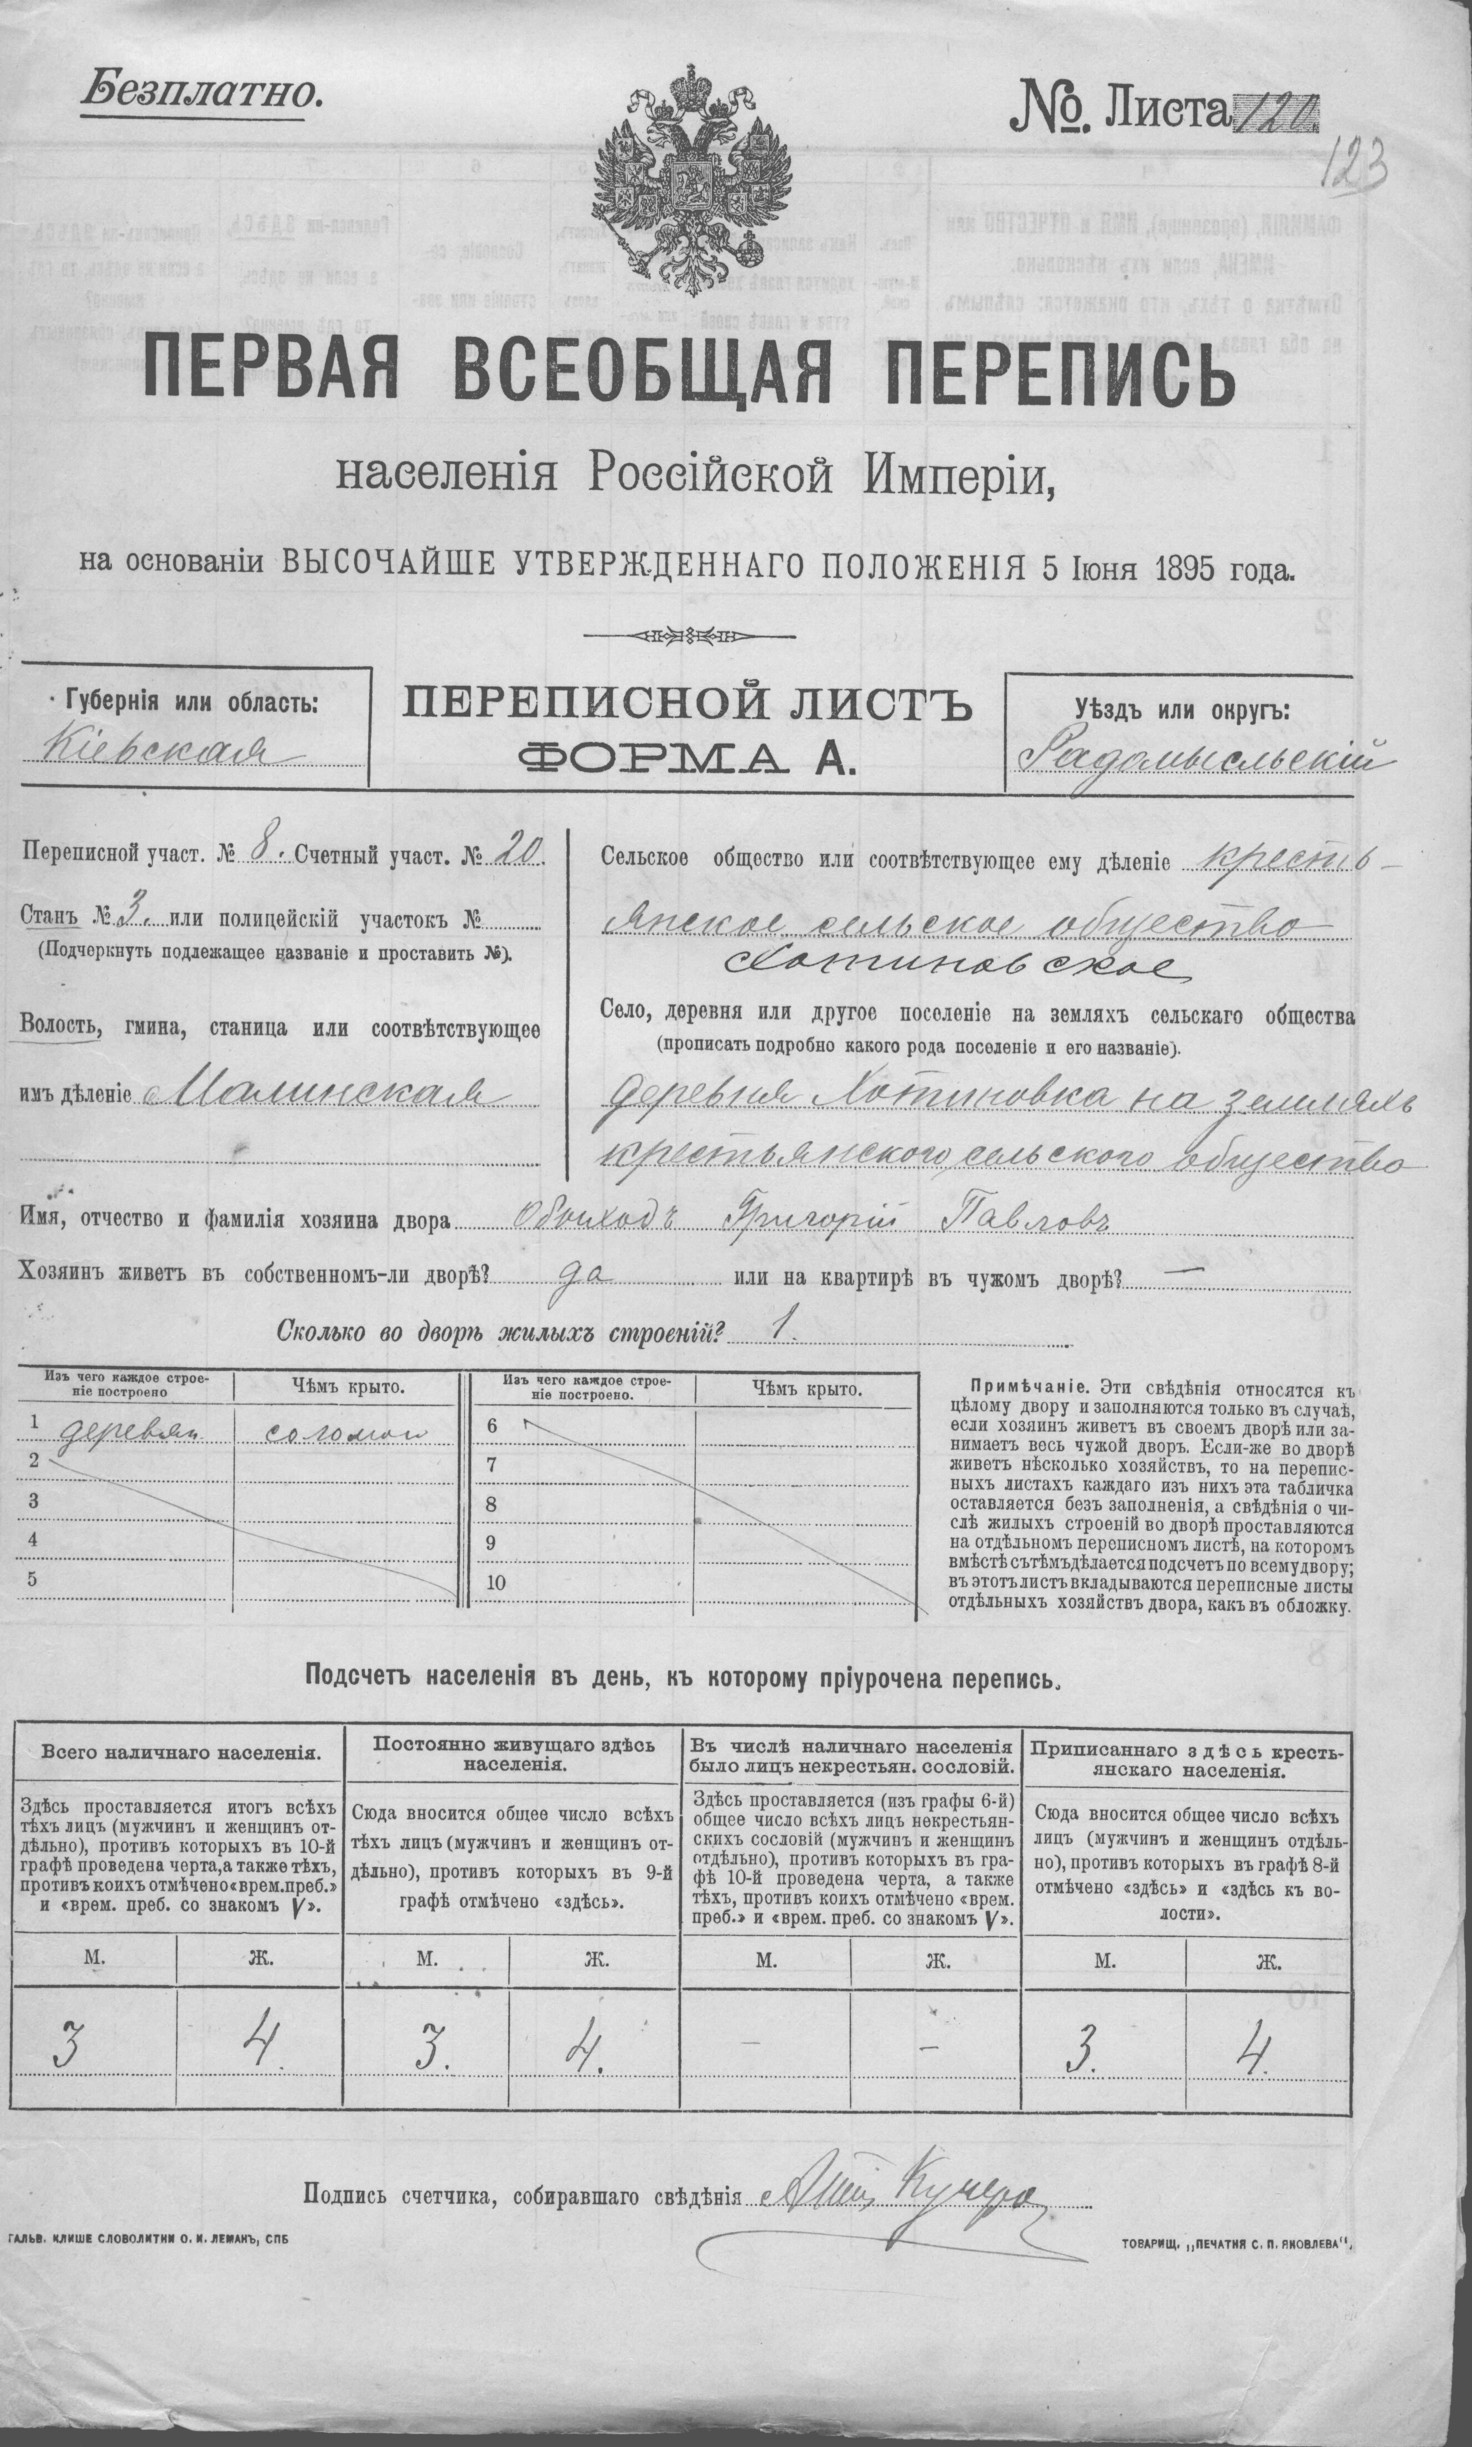 Безплатно.
№. Листа 120.
123
ПЕРВАЯ ВСЕОБЩАЯ ПЕРЕПИСЬ
населенія Россійской Имперіи,
на основаніи ВЫСОЧАЙШЕ УТВЕРЖДЕННАГО ПОЛОЖЕНІЯ 5 Іюня 1895 года.
Губернія или область:
Кіевская
ПЕРЕПИСНОЙ ЛИСТЪ
ФОРМА А.
Уѣздъ или округъ:
Радомысльскій
Переписной участ. № 8. Счетный участ. № 20.
Станъ № 3. или полицейскій участокъ №
(Подчеркнуть подлежащее названіе и проставить №).
Волость, гмина, станица или соотвѣтствующее
имъ дѣленіе Малинская
Сельское общество или соотвѣтствующее ему дѣленіе кресть-
янское сельское общество
Хотиновское
Село, деревня или другое поселеніе на земляхъ сельскаго общества
(прописать подробно какого рода поселеніе и его названіе).
деревня Хотиновка на земляхъ
крестьянского сельского общество
Имя, отчество и фамилія хозяина двора Обиходъ Григорій Павловъ
Хозяинъ живетъ въ собственномъ-ли дворѣ? да или на квартирѣ въ чужомъ дворѣ? —
Сколько во дворѣ жилыхъ строеній? 1.
Изъ чего каждое строе-
ніе построено
Чѣмъ крыто.
Изъ чего каждое строе-
ніе построено.
Чѣмъ крыто.
1 деревян соломой
2
3
4
5
6
7
8
9
10
Примѣчаніе. Эти свѣдѣнія относятся къ
цѣлому двору и заполняются только въ случаѣ,
если хозяинъ живетъ въ своемъ дворѣ или за-
нимаетъ весь чужой дворъ. Если-же во дворѣ
живетъ нѣсколько хозяйствъ, то на перепис-
ныхъ листахъ каждаго изъ нихъ эта табличка
оставляется безъ заполненія, а свѣдѣнія о чи-
слѣ жилыхъ строеній во дворѣ проставляются
на отдѣльномъ переписномъ листѣ, на которомъ
вмѣстѣ съ тѣмъ дѣлается подсчетъ по всему двору;
въ этотъ листъ вкладываются переписные листы
отдѣльныхъ хозяйствъ двора, какъ въ обложку.
Подсчетъ населенія въ день, къ которому пріурочена перепись.
Всего наличнаго населенія.
Здѣсь проставляется итогъ всѣхъ
тѣхъ лицъ (мужчинъ и женщинъ от-
дѣльно), противъ которыхъ въ 10-й
графѣ проведена черта, а также тѣхъ,
противъ коихъ отмѣчено «врем. преб.»
и «врем. преб. со знакомъ V».
Постоянно живущаго здѣсь
населенія.
Сюда вносится общее число всѣхъ
тѣхъ лицъ (мужчинъ и женщинъ от-
дѣльно), противъ которыхъ въ 9-й
графѣ отмѣчено «здѣсь».
Въ числѣ наличнаго населенія
было лицъ некрестьян. сословій.
Здѣсь проставляется (изъ графы 6-й)
общее число всѣхъ лицъ некрестьян-
скихъ сословій (мужчинъ и женщинъ
отдѣльно), противъ которыхъ въ гра-
фѣ 10-й проведена черта, а также
тѣхъ, противъ коихъ отмѣчено «врем.
преб.» и «врем. преб. со знакомъ V».
Приписаннаго здѣсь кресть-
янскаго населенія.
Сюда вносится общее число всѣхъ
лицъ (мужчинъ и женщинъ отдѣль-
но), противъ которыхъ въ графѣ 8-й
отмѣчено «здѣсь» и «здѣсь къ во-
лости».
М. Ж. М. Ж. М. Ж. М. Ж.
3 4. 3. 4. — — 3. 4.
Подпись счетчика, собиравшаго свѣдѣнія Кучера
ГАЛЬВ. КЛИШЕ СЛОВОЛИТНИ О. И. ЛЕМАНЪ, СПБ
ТОВАРИЩ. „ПЕЧАТНЯ С. П. ЯКОВЛЕВА".